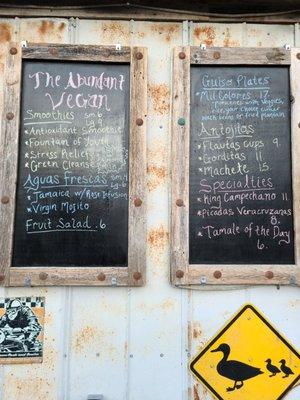 The Abundant
Vegan
Smoothies sm 6
lg 9
*Antioxidant Smoothie
*Fountain of Youth
*Stress Relief
*Green Cleanse
Aguas Frescas sm
lg
*Jamaica w/ Rose Infusion
*Virgin Mojito
Fruit Salad . 6
Guiso Plates
*Mil Colores 17
potatoes with veggies,
black beans or fried plantain
Antojitos
*Flautas Cups 9
*Gorditas 11
*Machete 15
Specialties
*King Campechano 11
*Picadas Veracruzanas
8
*Tamale of the Day
6.